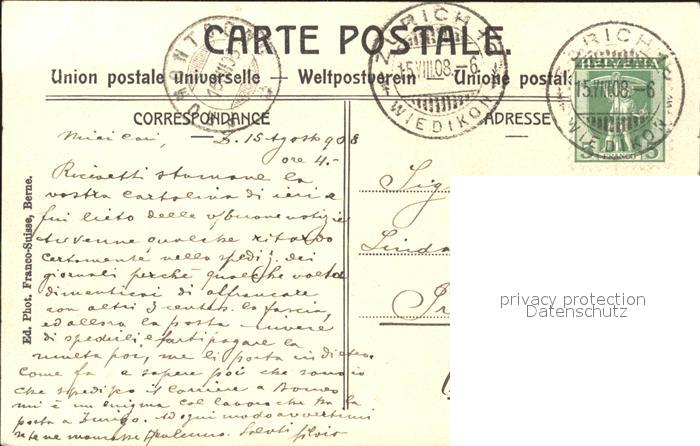 CARTE POSTALE.
Union postale universelle — Weltpostverein — Unione postale
CORRESPONDANCE
ADRESSE
ZÜRICH
15.VIII.08.-6
WIEDIKON
ZÜRICH
15.VIII.08.-6
WIEDIKON
HELVETIA
FRANCO
5 5
Miei Cari, Z. 15 Agosto 908
ore 4.-
Ricevetti stamane la
vostra cartolina di ieri e
fui lieto delle buone notizie
avvenne qualche ritardo
certamente nella spediz. dei
giornali perché qualche volta
dimenticai di affrancare
con altri 3 centes. la fascia,
ed allora la posta invece
di spedirli e farti pagare la
multa poi, me li porta indietro.
Come fa a sapere poi che sono io
che spedisco il Corriere a Borneo
mi è un enigma col lavoro che ha la
posta a Zurigo. Ad ogni modo avvertimi
se te ne mancasse qualcuno. Saluti Silvio
Sig
Linda
Ed. Phot. Franco-Suisse, Berne.
privacy protection
Datenschutz